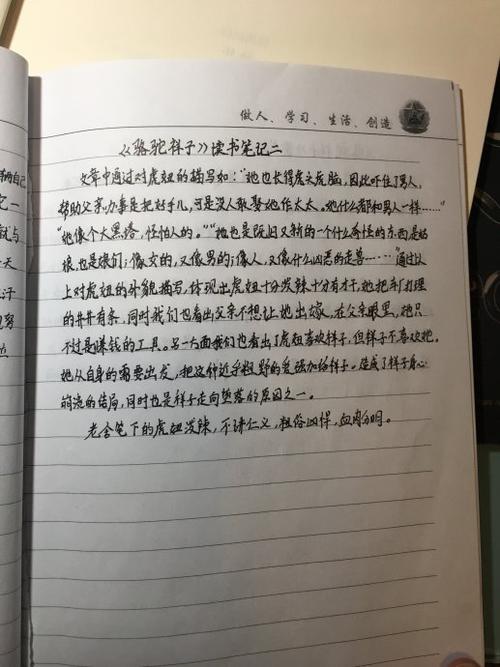 做人、学习、生活、创造
《骆驼祥子》读书笔记二
文章中通过对虎妞的描写如："她也长得虎头虎脑，因此吓住了男人，
帮助父亲办事是把好手儿，可是没人敢娶她作太太。她什么都和男人一样……"
"她像个大黑塔，怪怕人的。""她也是既旧又新的一个什么奇怪的东西，是姑
娘，也是娘们；像女的，又像男的；像人，又像什么凶恶的走兽……"通过以
上对虎妞的外貌描写，体现出虎妞十分泼辣十分有才干，她把车厂打理
的井井有条，同时我们也看出父亲不想让她出嫁，在父亲眼里，她只
不过是赚钱的工具。另一方面我们也看出了虎妞喜欢祥子，但祥子不喜欢她。
她从自身的需要出发，把这种近乎粗野的爱强加给祥子。造成了祥子身心
崩溃的结局，同时也是祥子走向堕落的原因之一。
老舍笔下的虎妞泼辣，不讲仁义，粗俗凶悍，血肉分明。